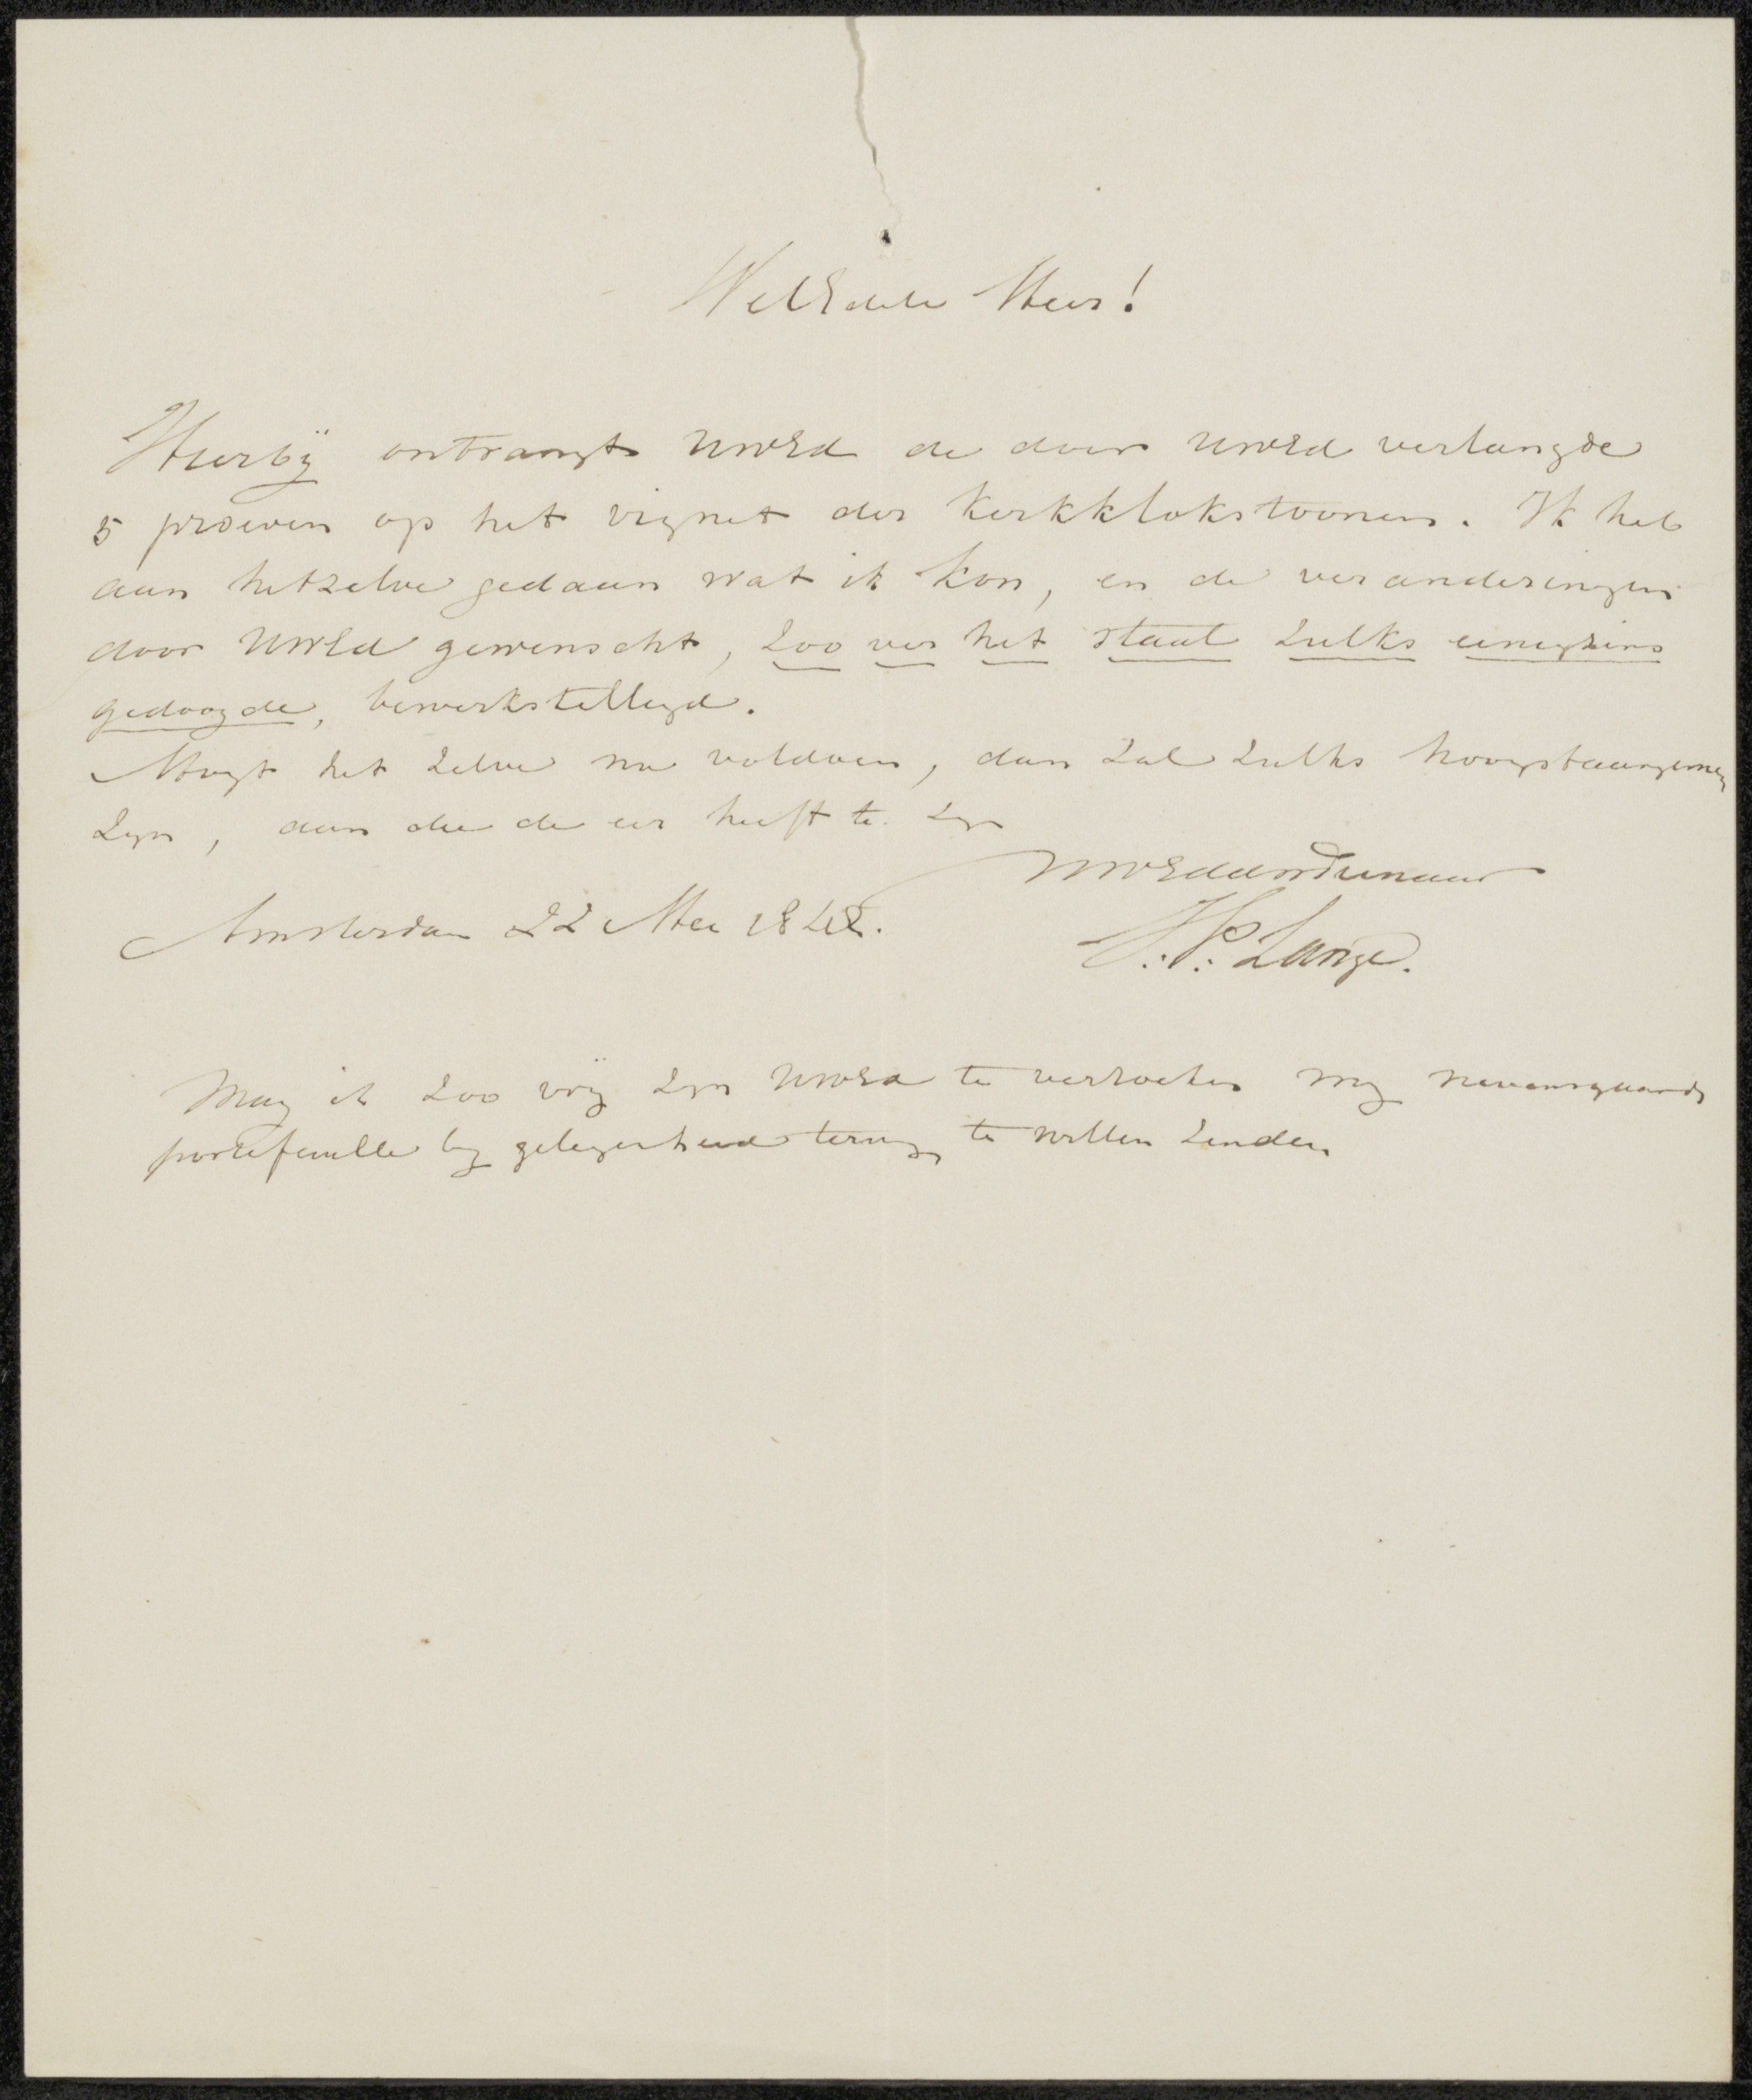 WelEdele Heer!
Hierbÿ ontvangt UWEd de door UWEd verlangde
5 proeven op het vignet der Kerkklokstoonen. Ik heb
aan hetzelve gedaan wat ik kon, en de veranderingen
door UWEd gewenscht, zoo ver het staal zulks eenigzins
gedoogde, bewerkstelligd.
Mogt het zelve nu voldoen, dan zal zulks hoogstaangenaam
zyn, aan die de eer heeft te zyn
UWEd dwdienaar
Amsterdam 22 Mei
J.P. Lange.
Mag ik zoo vrÿ zyn UWEd te verzoeken my nevensgaande
portefeuille by gelegenheid terug te willen zenden